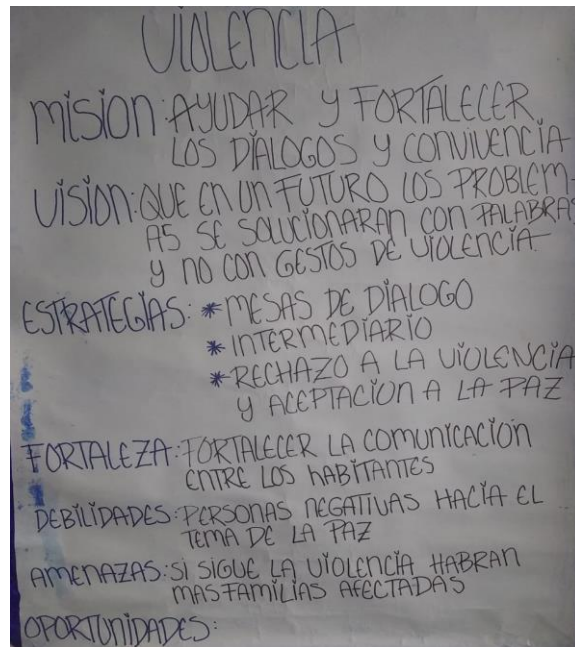 VIOLENCIA
MISION: AYUDAR Y FORTALECER
LOS DIALOGOS Y CONVIVENCIA
VISION: QUE EN UN FUTURO LOS PROBLEM-
AS SE SOLUCIONARAN CON PALABRAS
Y NO CON GESTOS DE VIOLENCIA
ESTRATEGIAS: * MESAS DE DIALOGO
* INTERMEDIARIO
* RECHAZO A LA VIOLENCIA
Y ACEPTACION A LA PAZ
FORTALEZA: FORTALECER LA COMUNICACION
ENTRE LOS HABITANTES
DEBILIDADES: PERSONAS NEGATIVAS HACIA EL
TEMA DE LA PAZ
AMENAZAS: SI SIGUE LA VIOLENCIA HABRAN
MAS FAMILIAS AFECTADAS
OPORTUNIDADES: